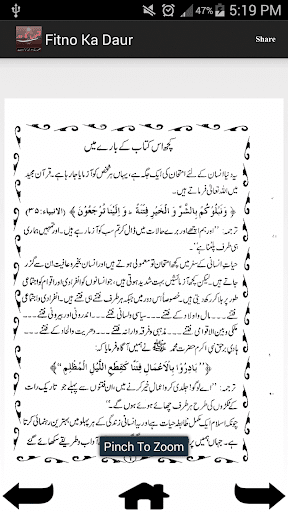 5:19 PM
47%
Fitno Ka Daur
Share
کچھ اس کتاب کے بارے میں
یہ دنیا انسان کے لئے امتحان کی ایک جگہ ہے، یہاں ہر شخص کو آزمایا جا رہا ہے۔ قرآن مجید
میں اللہ تعالیٰ فرماتے ہیں۔
﴿ وَنَبْلُوْكُمْ بِالشَّرِّ وَ الْخَيْرِ فِتْنَةً ، وَ اِلَيْنَا تُرْجَعُوْنَ ﴾ (الانبیاء: ۳۵)
ترجمہ: "اور ہم اچھے اور برے حالات میں ڈال کر تم سب کو آزما رہے ہیں۔ اور تمہیں ہماری
ہی طرف پلٹنا ہے"۔
حیاتِ انسانی کے سفر میں کچھ امتحان تو معمولی ہوتے ہیں اور انسان بخیر و عافیت ان سے گزر
جاتے ہیں۔ لیکن کچھ آزمائشیں بہت شدید ہوتی ہیں، جو انسانوں کو انفرادی اور اقوام کو اجتماعی
طور پر ہلا کر رکھ دیتی ہیں۔ خصوصاً اس دور میں جبکہ ہر طرف فتنے ہی فتنے ہیں۔ انفرادی و اجتماعی
فتنے۔۔۔۔ مال و اولاد کے فتنے۔۔۔۔ سیاسی و لسانی فتنے۔۔۔۔ اندرونی اور بیرونی فتنے۔۔۔۔
ملکی و بین الاقوامی فتنے۔۔۔۔ مذہبی و فرقہ وارانہ فتنے۔۔۔۔ دھریت والحاد کے فتنے۔۔۔۔
ہادی برحق نبی اکرم حضرت محمد ﷺ نے ہمیں آگاہ فرمایا کہ۔
﴿ "بَادِرُوْا بِالْاَعْمَالِ فِتَنًا كَقِطَعِ اللَّيْلِ الْمُظْلِمِ" ﴾
ترجمہ: "اے لوگو! جلدی کرو اعمال خیر کرنے میں، ان فتنوں سے پہلے جو تاریک رات
کے ٹکڑوں کی طرح ہر طرف چھائے ہوئے ہوں گے"۔
چونکہ اسلام ایک مکمل ضابطۂ حیات ہے اور یہ انسانی زندگی کے ہر پہلو میں بہترین رہنمائی کرتا
ہے۔ جہاں ہمیں آداب و طریقے سکھائے گئے
Pinch To Zoom